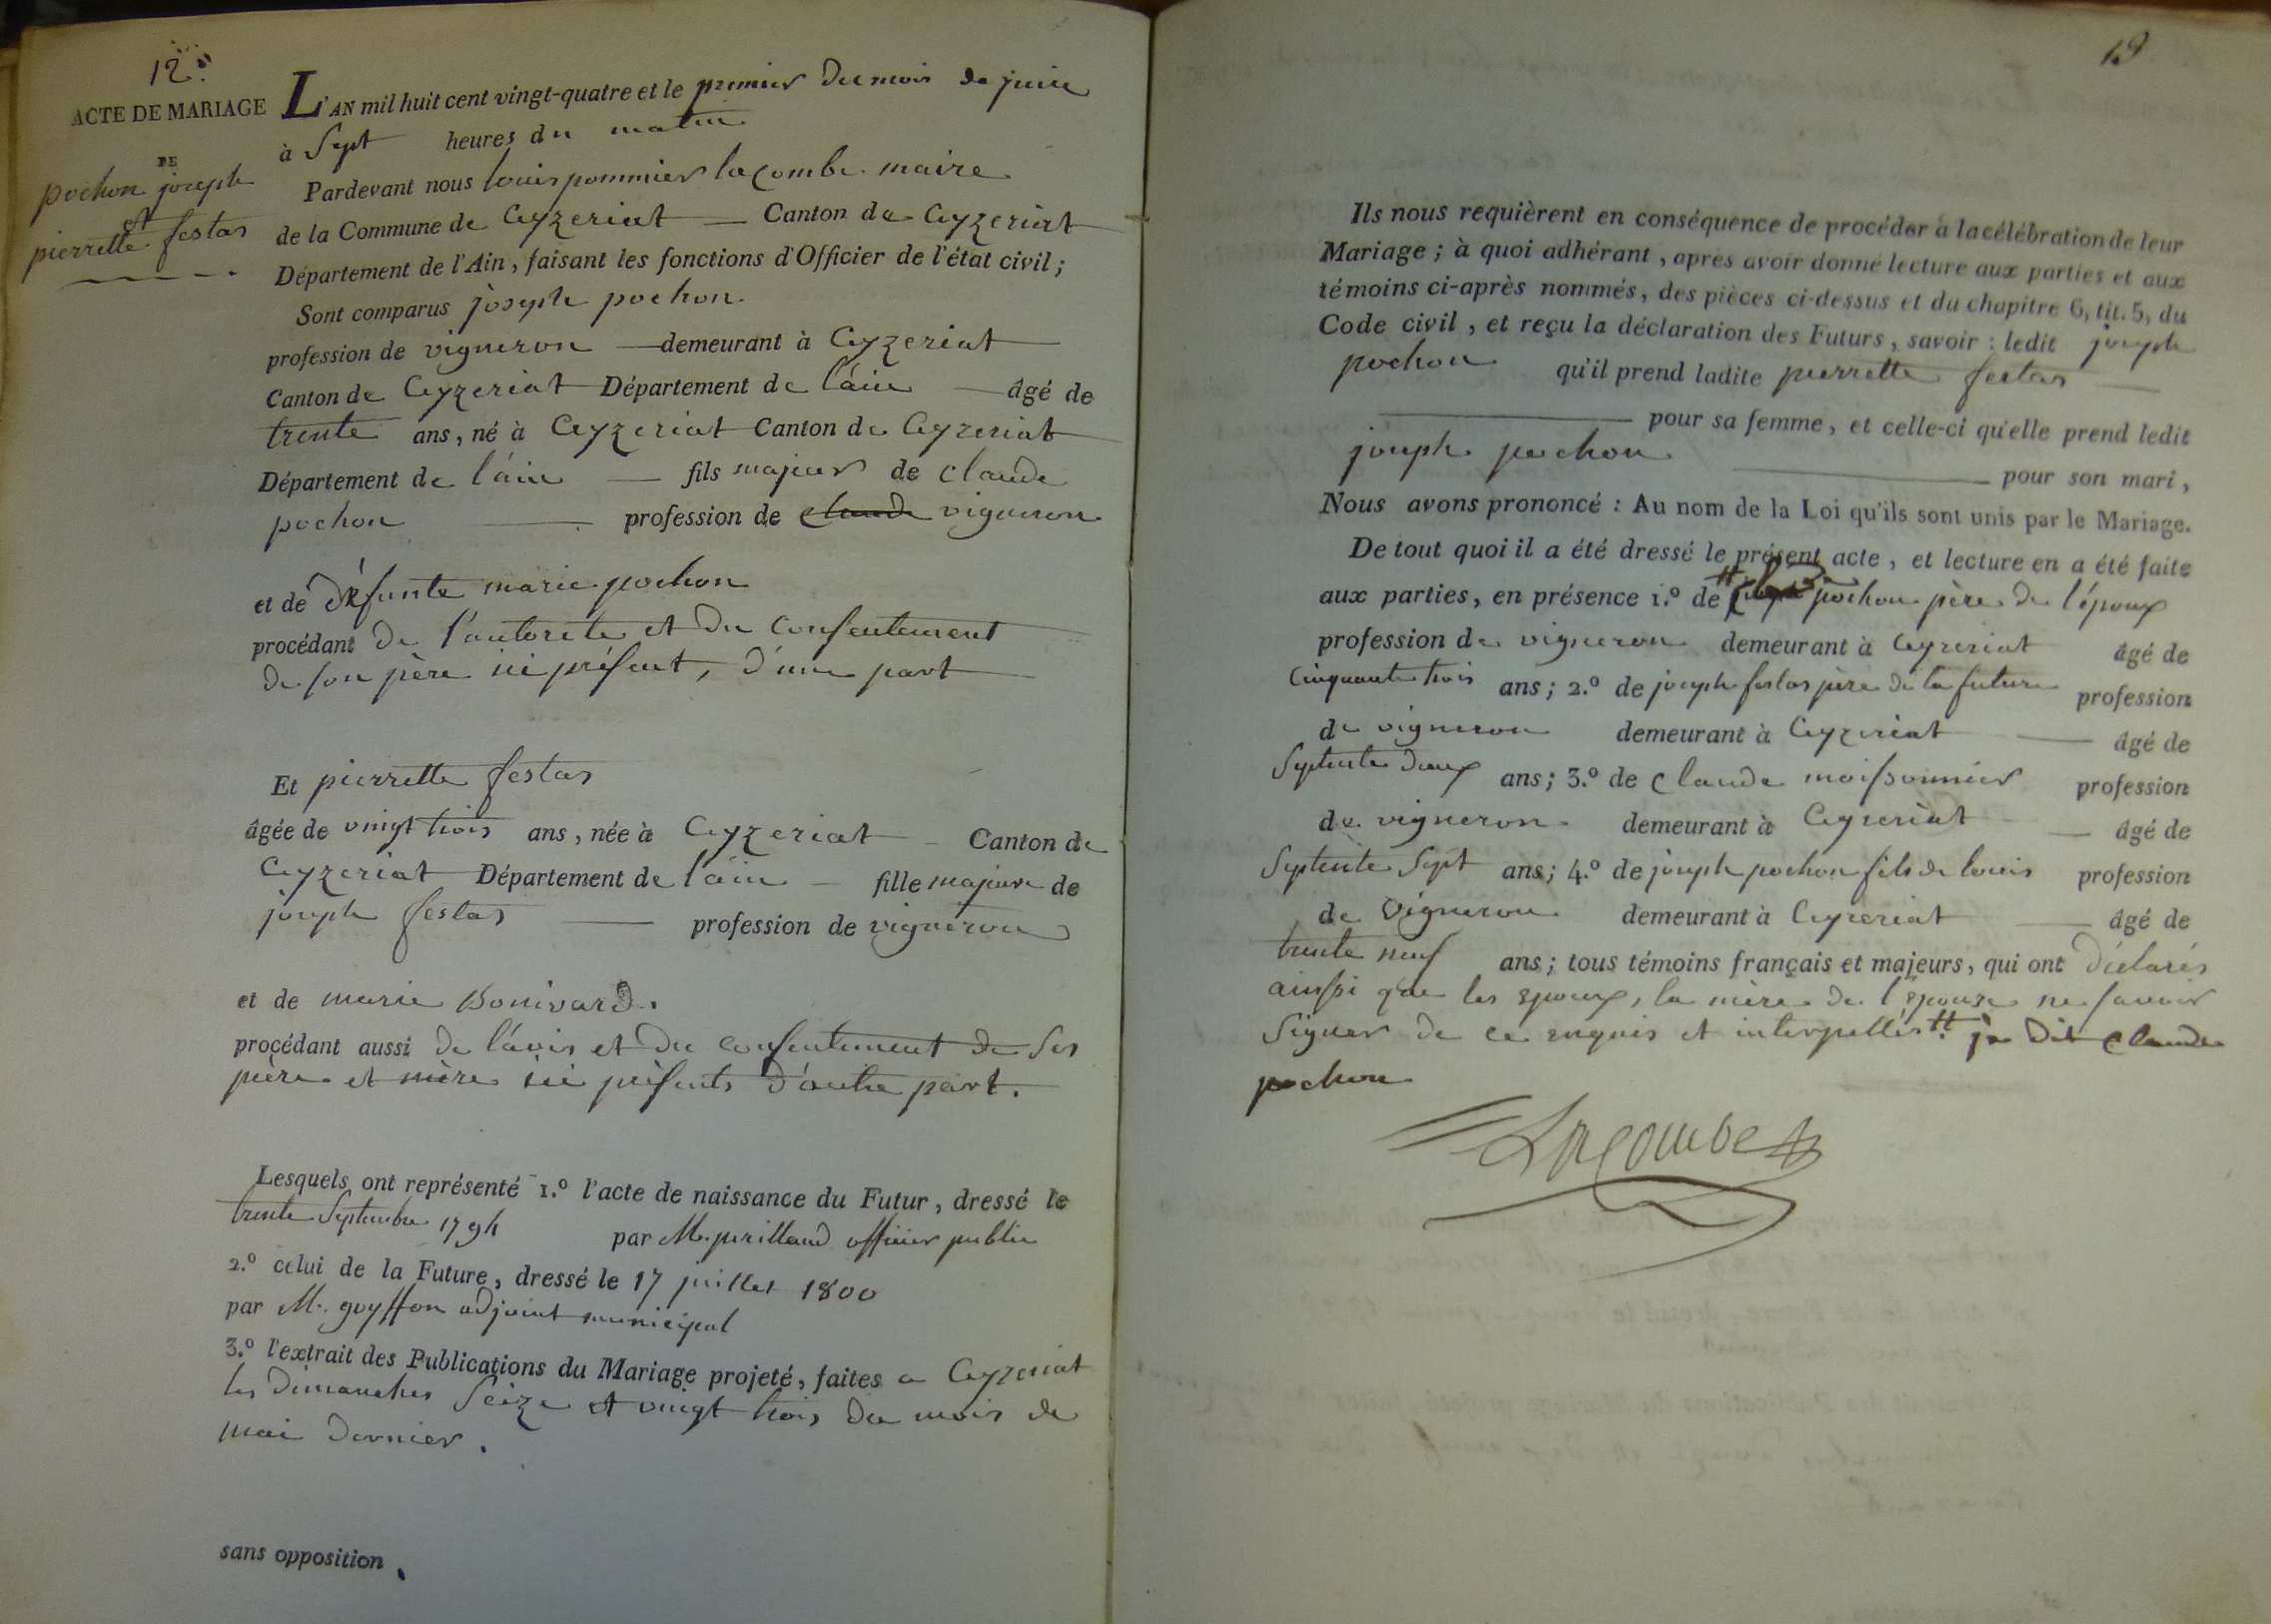 12e
ACTE DE MARIAGE
DE
pochon joseph
et
pierrette festas
L'AN mil huit cent vingt-quatre et le premier du mois de juin
à Sept heures du matin
Pardevant nous louis pommier lacombe maire
de la Commune de Ceyzeriat Canton de Ceyzeriat
Département de l'Ain, faisant les fonctions d'Officier de l'état civil;
Sont comparus joseph pochon
profession de vigneron demeurant à Ceyzeriat
Canton de Ceyzeriat Département de l'ain âgé de
trente ans, né à Ceyzeriat Canton de Ceyzeriat
Département de l'ain fils majeur de claude
pochon profession de claude vigneron
et de défunte marie pochon
procédant de l'autorité et du consentement
de son père ici présent, d'une part
Et pierrette festas
âgée de vingt trois ans, née à Ceyzeriat Canton de
Ceyzeriat Département de l'ain fille majeure de
joseph festas profession de vigneron
et de marie Bonivard.
procédant aussi de l'avis et du consentement de ses
père et mère ici présents d'autre part.
Lesquels ont représenté 1.º l'acte de naissance du Futur, dressé le
trente Septembre 1794 par M. perillaud officier public
2.º celui de la Future, dressé le 17 juillet 1800
par M. guyffon adjoint municipal
3.º l'extrait des Publications du Mariage projeté, faites a Ceyzeriat
les dimanches Seize et vingt trois du mois de
mai dernier.
sans opposition.
19
Ils nous requièrent en conséquence de procéder à la célébration de leur
Mariage; à quoi adhérant, après avoir donné lecture aux parties et aux
témoins ci-après nommés, des pièces ci-dessus et du chapitre 6, tit. 5, du
Code civil, et reçu la déclaration des Futurs, savoir: ledit joseph
pochon qu'il prend ladite pierrette festas
pour sa femme, et celle-ci qu'elle prend ledit
joseph pochon
pour son mari,
Nous avons prononcé: Au nom de la Loi qu'ils sont unis par le Mariage.
De tout quoi il a été dressé le présent acte, et lecture en a été faite
aux parties, en présence 1.º de pochon père de l'époux
profession de vigneron demeurant à Ceyzeriat âgé de
Cinquante trois ans; 2.º de joseph festas père de la future profession
de vigneron demeurant à Ceyzeriat âgé de
Septente deux ans; 3.º de claude moissonnier profession
de vigneron demeurant à Ceyzeriat âgé de
Septente Sept ans; 4.º de joseph pochon fils de louis profession
de vigneron demeurant à Ceyzeriat âgé de
trente neuf ans; tous témoins français et majeurs, qui ont déclarés
ainsi que les epoux, la mère de l'épouse ne savoir
Signer de ce enquis et interpellés # je dit claude
pochon
Lacombe